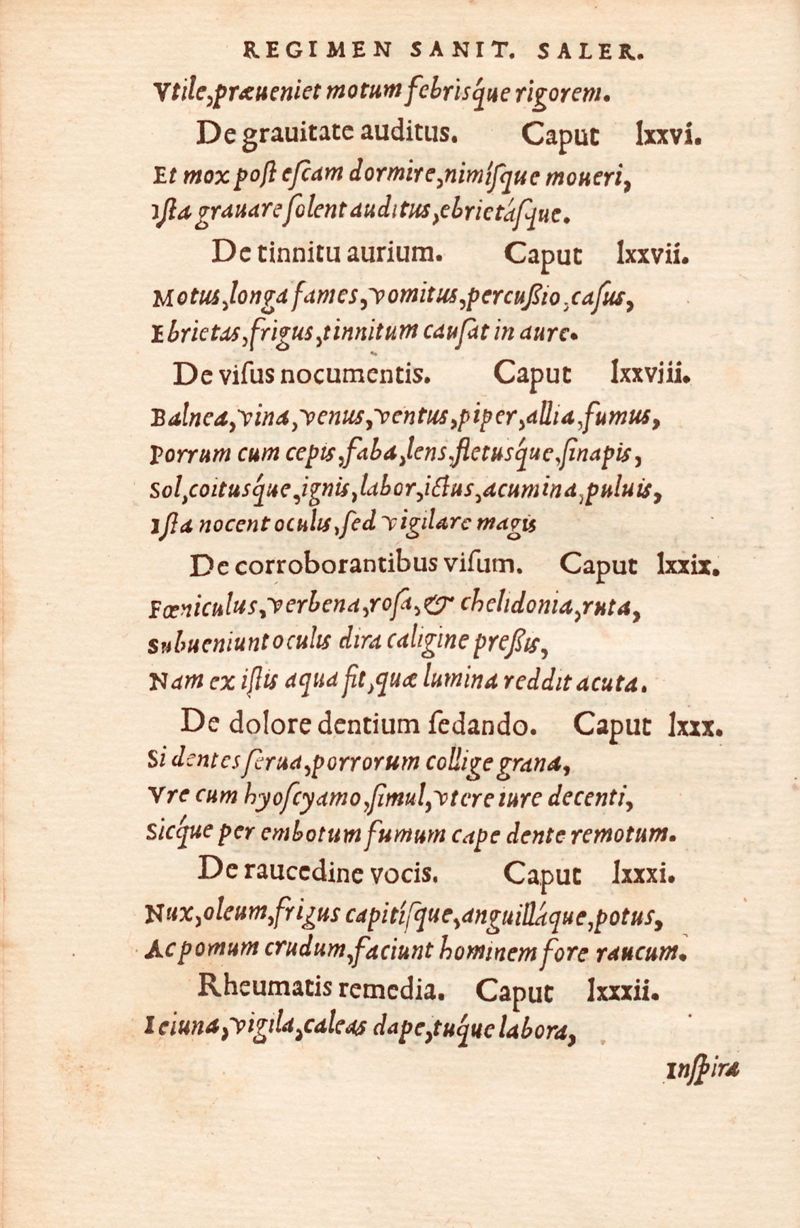 REGIMEN SANIT. SALER.
Vtile, præueniet motum febrisq́ue rigorem.
De grauitate auditus. Caput lxxvi.
Et mox post escam dormire, nimísque moueri,
Ista grauare solent auditus, ebrietásque.
De tinnitu aurium. Caput lxxvii.
Motus, longa fames, vomitus, percußio, casus,
Ebrietas, frigus, tinnitum causat in aure.
De visus nocumentis. Caput lxxviii.
Balnea, vina, venus, ventus, piper, allia, fumus,
Porrum cum cepis, faba, lens, fletusq́ue, sinapis,
Sol, coitusq́ue, ignis, labor, ictus, acumina, puluis,
Ista nocent oculis, sed vigilare magis
De corroborantibus visum. Caput lxxix.
Fœniculus, verbena, rosa, & chelidonia, ruta,
Subueniunt oculis dira caligine preßis,
Nam ex istis aqua fit, quæ lumina reddit acuta.
De dolore dentium sedando. Caput lxxx.
Si dentes serua, porrorum collige grana,
Vre cum hyoscyamo, simul, vtere iure decenti,
Sicq́ue per embotum fumum cape dente remotum.
De raucedine vocis. Caput lxxxi.
Nux, oleum, frigus capitísque, anguilláque, potus,
Ac pomum crudum, faciunt hominem fore raucum.
Rheumatis remedia. Caput lxxxii.
Ieiuna, vigila, caleas dape, tuq́ue labora,
Inspira